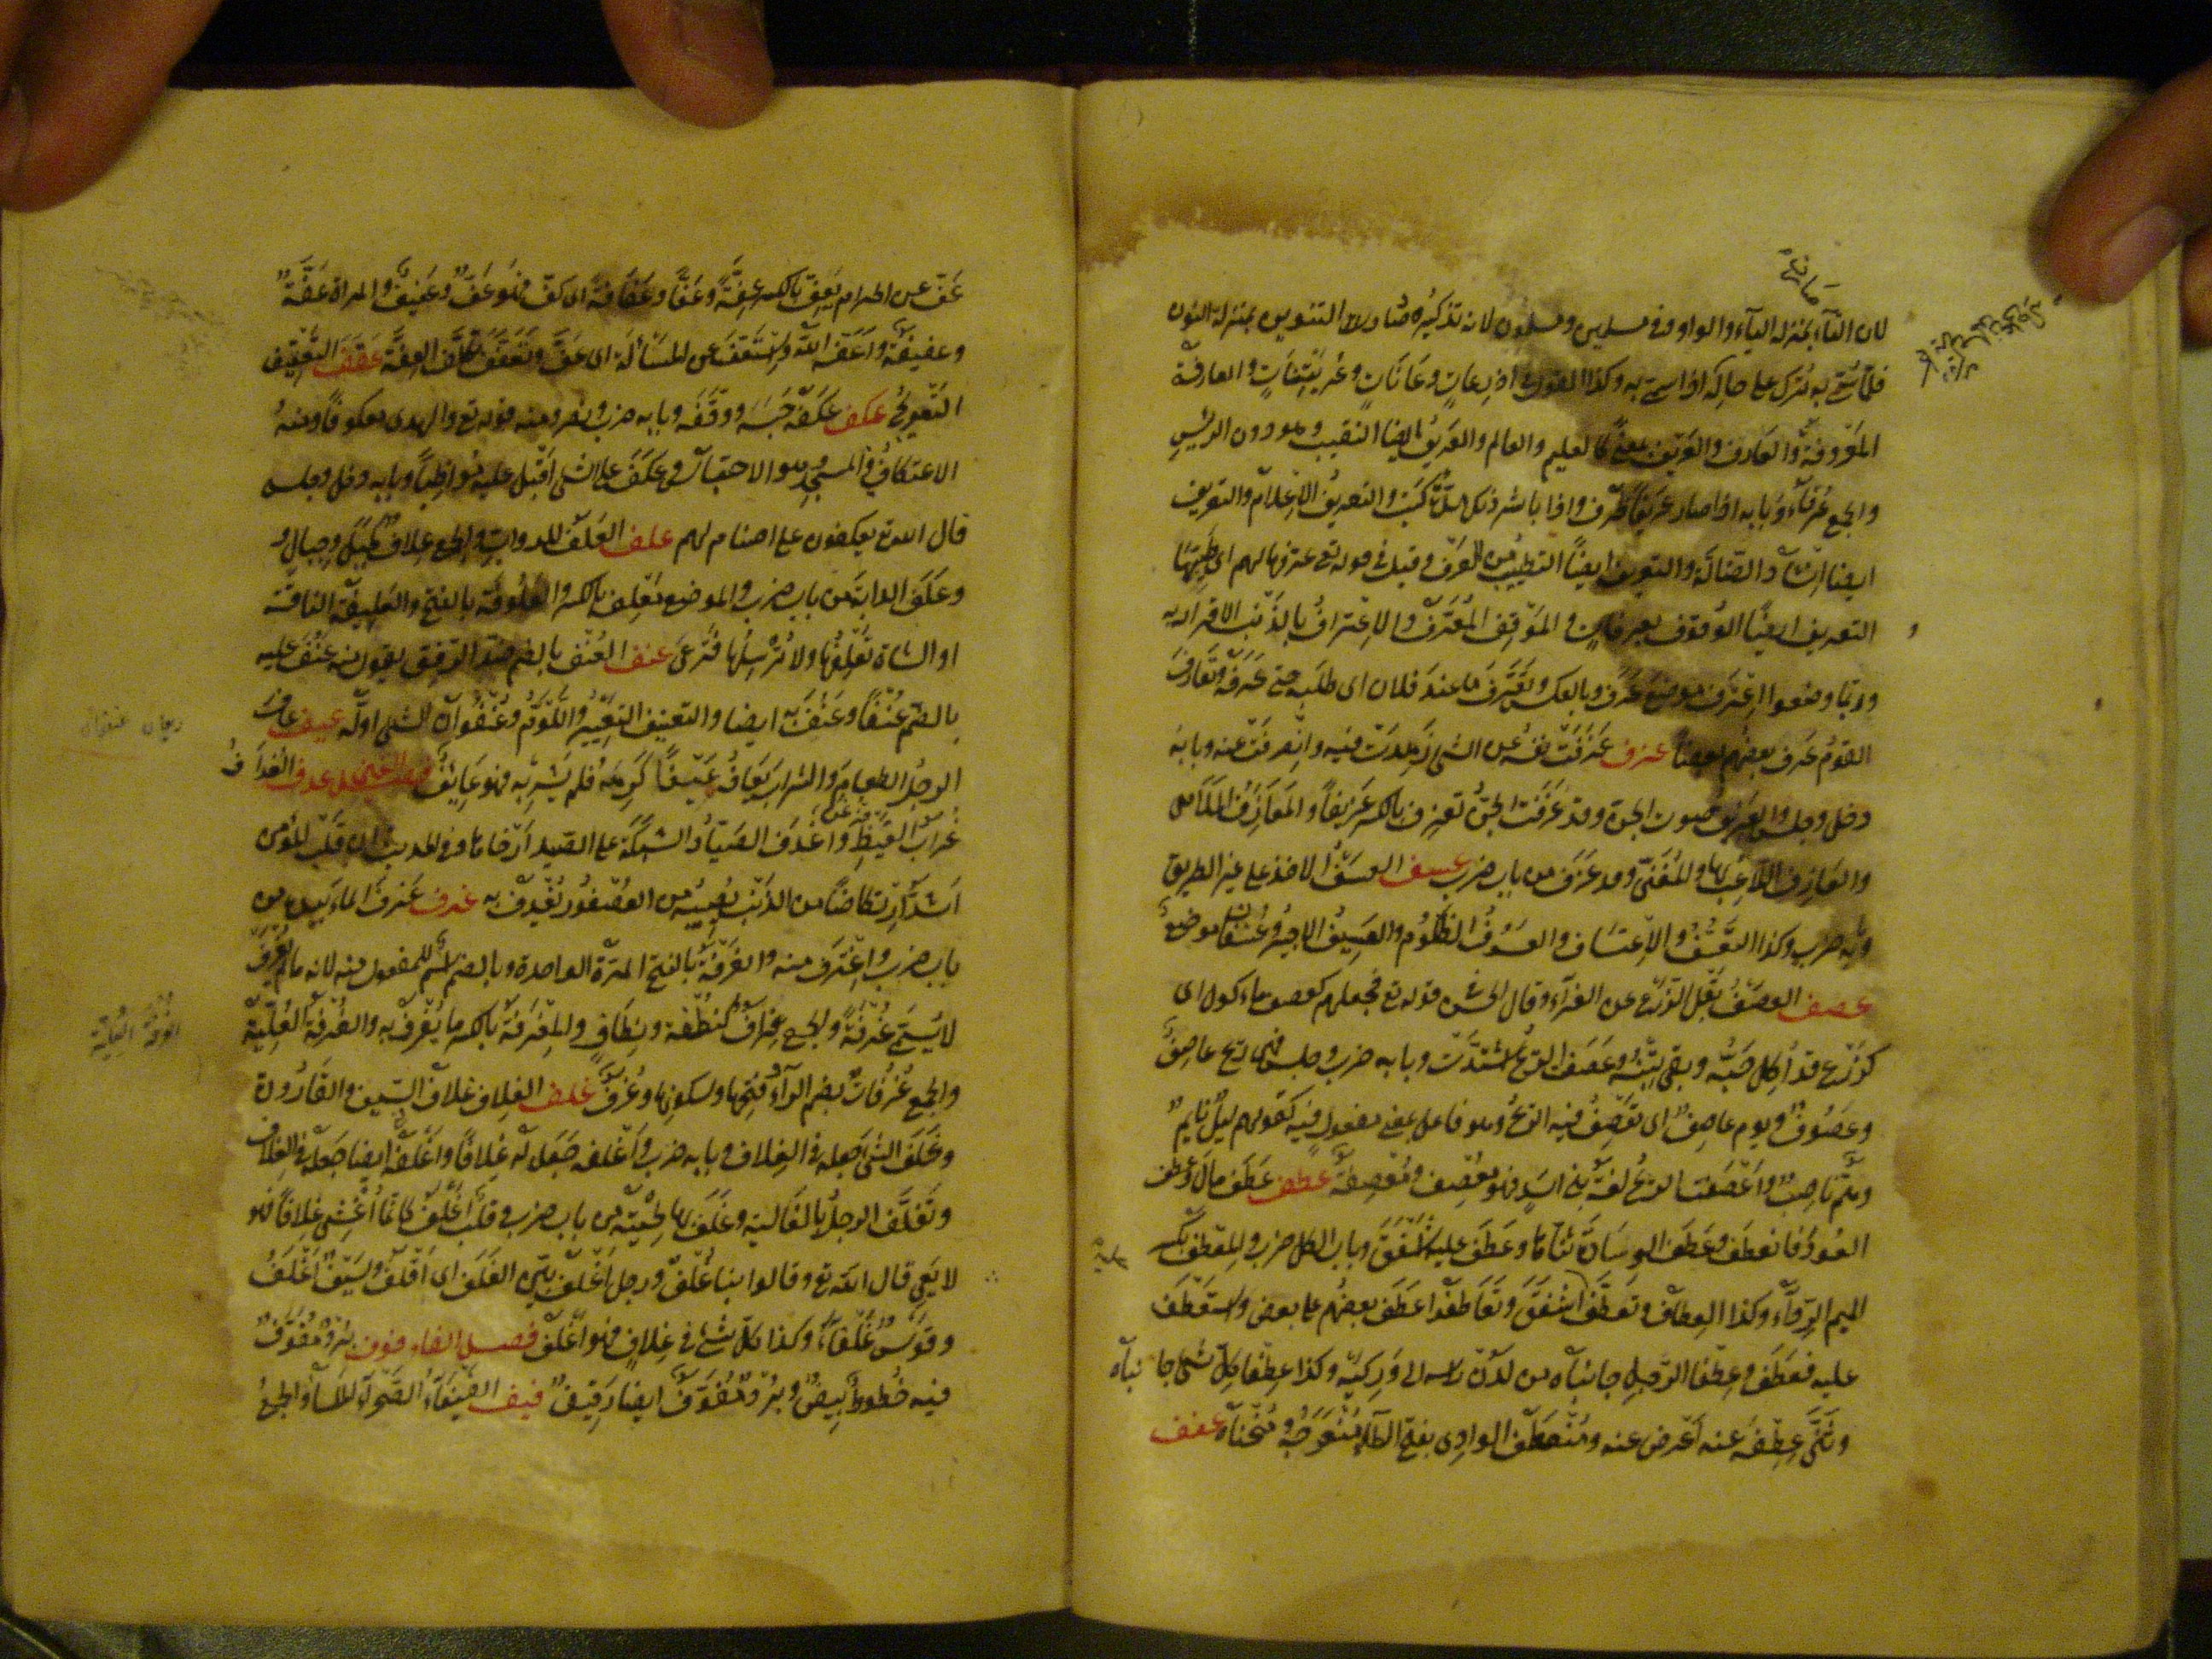 لان التآء بمنزلة اليآء والواو فى مسلمين ومسلمون لانه تذكيره وصار التنوين بمنزلة النون
فلما سمى به ترك على حاله اذا سمى به وكذا القول فى اذرعات وعانات وعريتنات والعارفة
المعروفة والعارف والعريف بمعنى كالعليم والعالم والعريف ايضا النقيب وهو دون الرئيس
والجمع عرفآء وبابه اذا صار عريفا ظرف واذا باشر ذلك مدة كتب والتعريف الاعلام والتعريف
ايضا انشاد الضالة والتعريف ايضا التطييب من العرف وقيل فى قوله تع عرفها لهم اى طيبها
التعريف ايضا الوقوف بعرفات والموقف المعرف والاعتراف بالذنب الاقرار به
وربما وضعوا اعترف موضع عرف وبالعكس وتعرف ما عند فلان اى طلبه حتى عرفه وتعارف
القوم عرف بعضهم بعضا عزف عزفت نفسه عن الشئ زهدت فيه وانصرفت عنه وبابه
دخل وجلس والعزيف صوت الجن وقد عزفت الجن تعزف بالكسر عزيفا والمعازف الملاهى
والعازف اللاعب بها والمغنى وقد عزف من باب ضرب عسف العسف الاخذ على غير الطريق
وبه ضرب وكذا التعسف والاعتساف والعسوف الظلوم والعسيف الاجير وعسفان موضع
عصف العصف بقل الزرع عن الفرآء وقال الحسن فى قوله تع فجعلهم كعصف مأكول اى
كزرع قد اكل حبه وبقى تبنه وعصفت الريح اشتدت وبابه ضرب وجلس فهى ريح عاصف
وعصوف ويوم عاصف اى تعصف فيه الريح وهو فاعل بمعنى مفعول فيه كقولهم ليل نايم
وهم ناصب واعصفت الريح لغة بنى اسد فهى معصف ومعصفة عطف عطف مال وعطف
العود فانعطف وعطف الوسادة ثناها وعطف عليه اشفق وباب الكل ضرب والمعطف بكسر
الميم الردآء وكذا العطاف وتعطف اشفق وتعاطفوا عطف بعضهم على بعض واستعطف
عليه فعطف وعطفا الرجل جانباه من لدن راسه الى وركيه وكذا عطفا كل شئ جانباه
وثنى عطفه عنه اعرض عنه ومنعطف الوادى بفتح الطآء منعرجه ومنحناه عفف
عف عن الحرام يعف بالكسر عفة وعفا وعفافة اى كف فهو عف وعفيف والمراة عفة
وعفيفة واعفه الله واستعف عن المسألة اى عف وتعفف تكلف العفة عقف التعقيف
التعويج عكف عكفه حبسه ووقفه وبابه ضرب ونصر ومنه قوله تع والهدى معكوفا ومنه
الاعتكاف فى المسجد وهو الاحتباس وعكف على الشئ اقبل عليه مواظبا وبابه دخل وجلس
قال الله تع يعكفون على اصنام لهم علف العلف للدواب والجمع علاف كجبل وجبال و
وعلف الدابة من باب ضرب والموضع معلف بالكسر والعلوفة بالفتح والعليفة الناقة
او الشاة تعلفها ولا ترسلها فترعى عنف العنف بالضم ضد الرفق يقول منه عنف عليه
بالضم عنفا وعنف به ايضا والتعنيف التعيير واللوم وعنفوان الشئ اوله عيف عاف
الرجل الطعام والشراب يعافه عيفا كرهه فلم يشربه فهو عايف فصل الغين غدف الغداف
غراب القيظ واغدف الصياد الشبكة على الصيد ارخاها وفى الحديث ان قلب المؤمن
اشد ارتكاضا من الذنب يصيبه من العصفور يغدف به غرف غرف المآء بيده من
باب ضرب واغترف منه والغرفة بالفتح المرة الواحدة وبالضم اسم للمفعول منه لانه مالم يغرف
لا يسمى غرفة والجمع غراف كنطفة ونطاف والمغرفة بالكسر ما يغرف به والغرفة العلية
والجمع غرفات بضم الرآء وفتحها وسكونها وغرف غلف الغلاف غلاف السيف والقارورة
وغلف الشئ جعله فى الغلاف وبابه ضرب واغلفه جعل له غلافا واغلفه ايضا جعله فى الغلاف
وتغلف الرجل بالغالية وغلف بها لحيته من باب ضرب وقلب اغلف كانما اغشى غلافا فهو
لا يعى قال الله تع وقالوا قلوبنا غلف ورجل اغلف بين الغلف اى اقلف وسيف اغلف
وقوس غلفآء وكذا كل شئ فى غلاف فهو اغلف فصل الفاء فوف برد مفوف
فيه خطوط بيض وبرد مفوف ايضا رقيق فيف الفيفآء الصحرآء الملسآء والجمع
الغرفة العلية